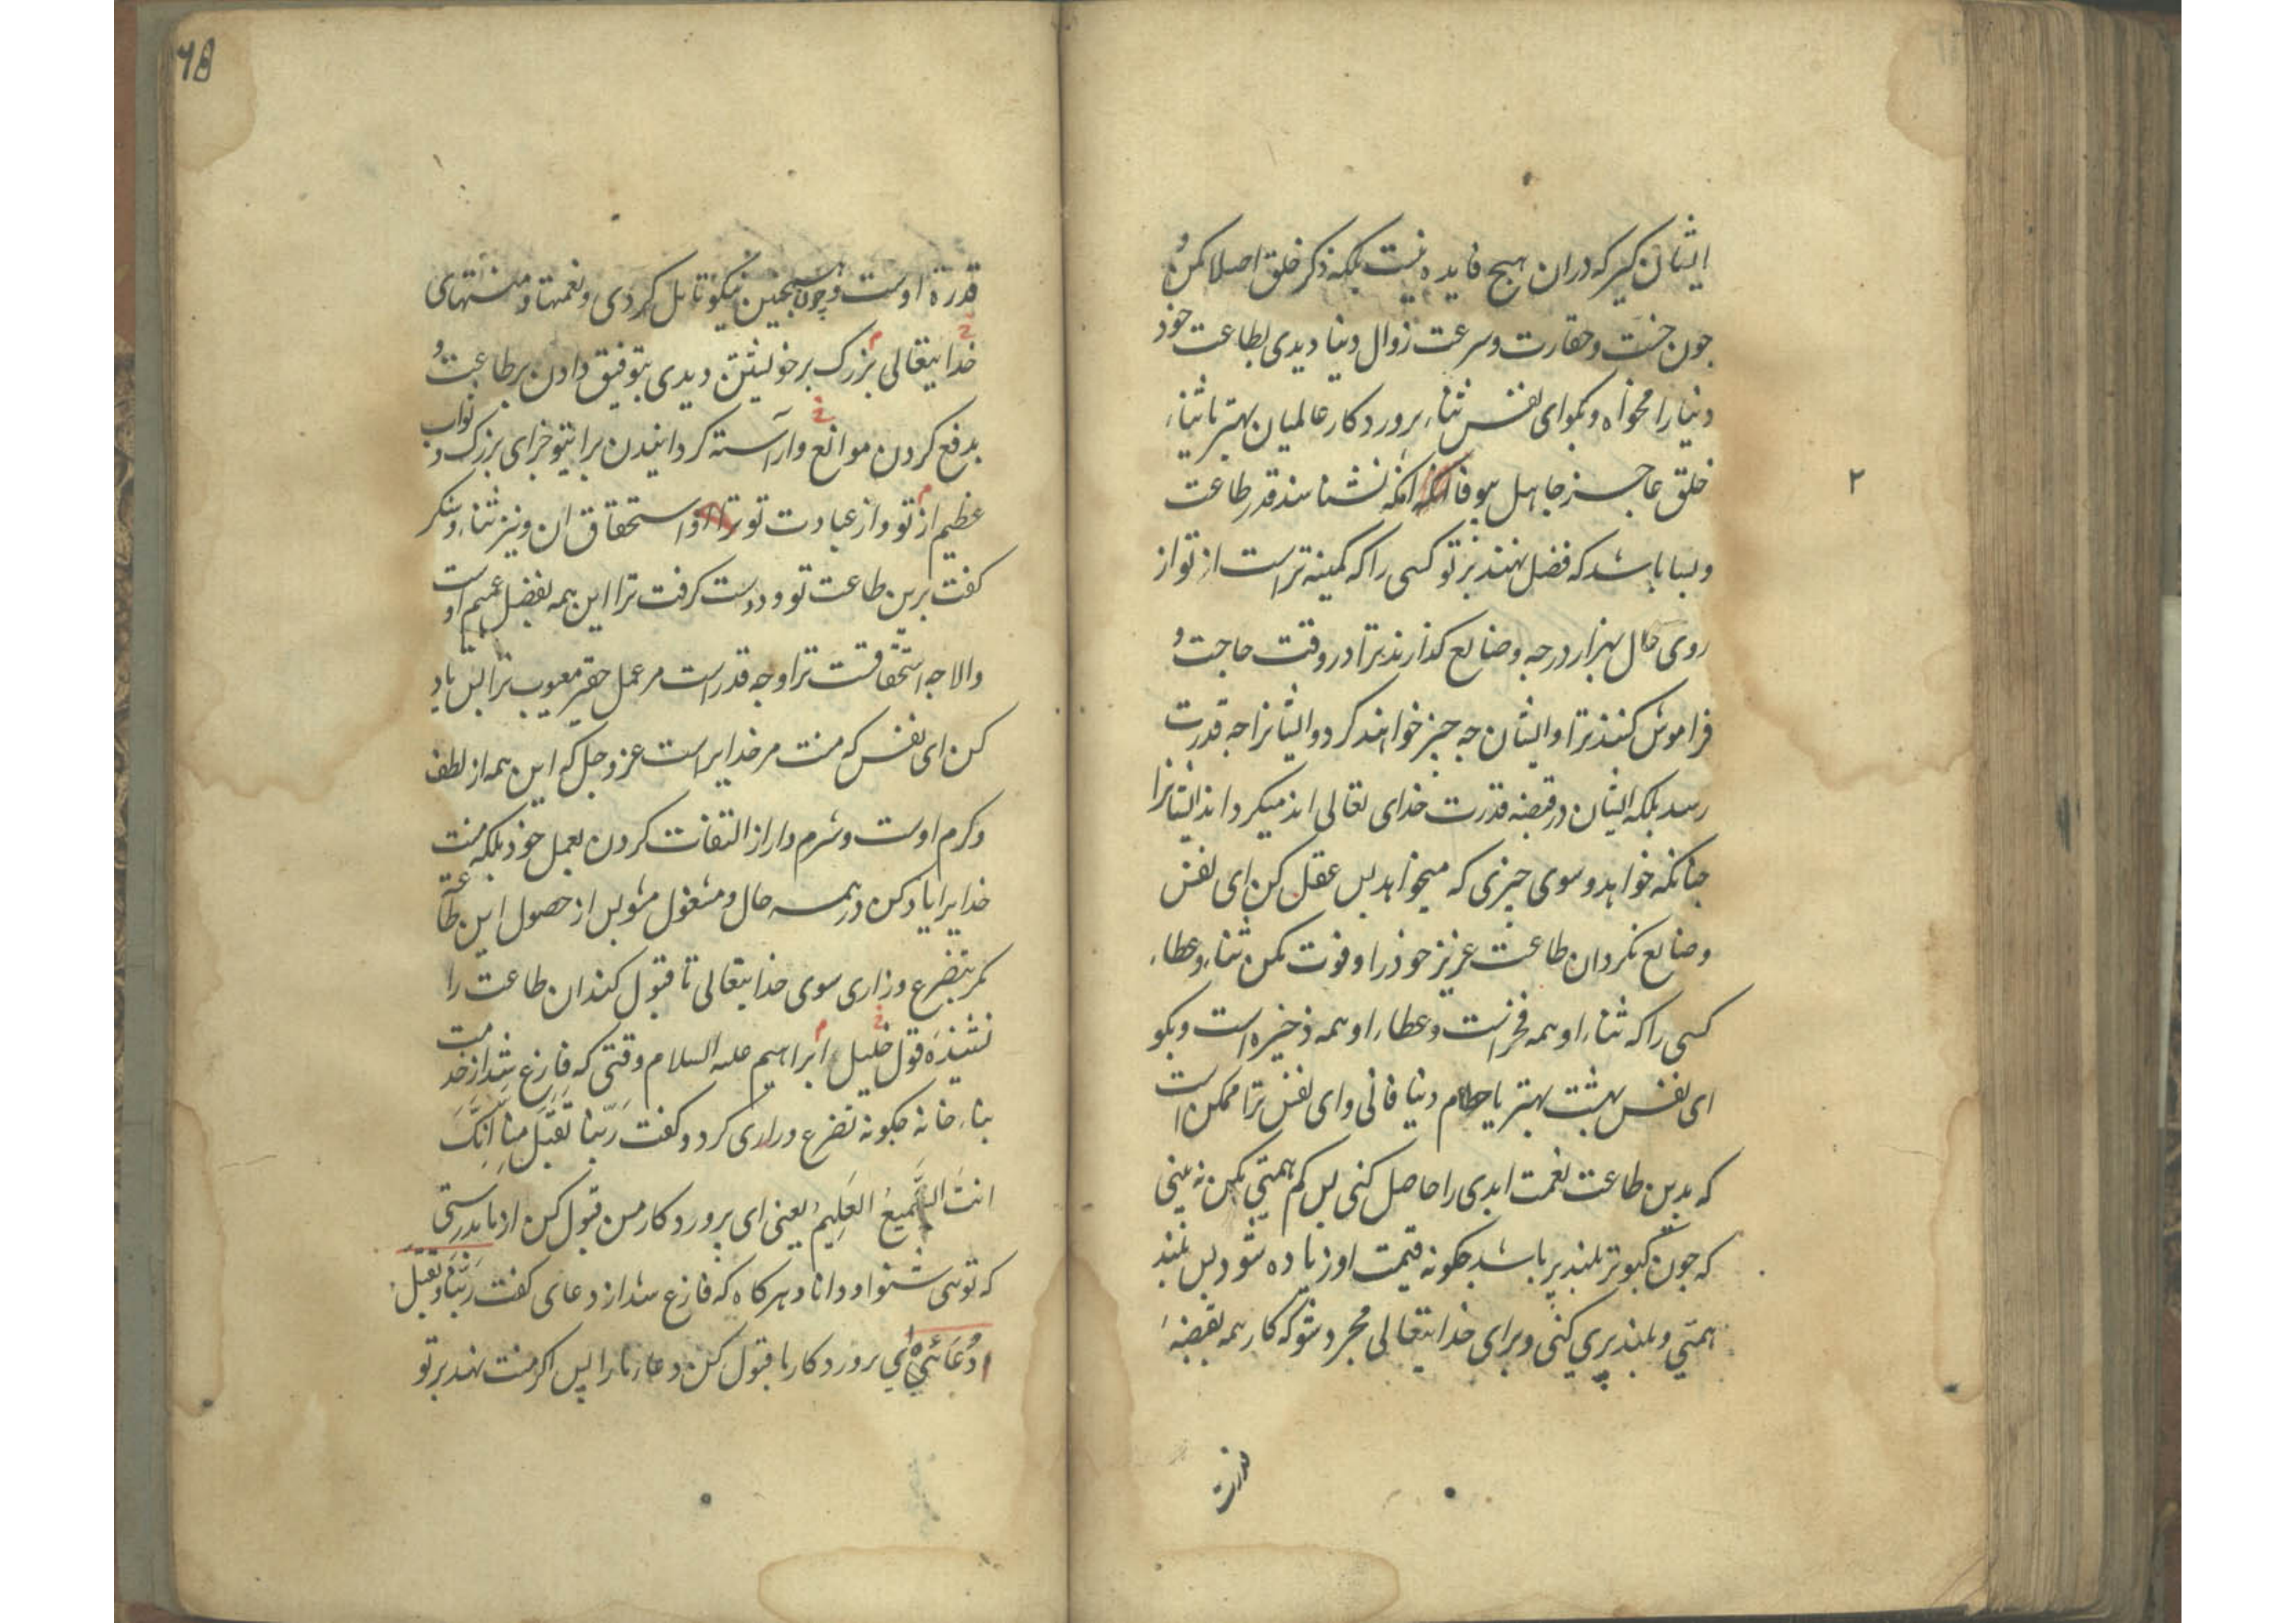 ایشان نکیر که دران هیچ فایده نیست بلکه ذکر خلق اصلا مکن و
جون خست و حقارت و سرعت زوال دنیا دیدی بطاعت خود
دنیا را مخواه و بکو ای نفس ثناء پرورد کار عالمیان بهتر یا ثناء
خلق عاجز جاهل بیوفا انکه نشناسند قدر طاعت
۲
و بسا باشد که فضل نهند بر تو کسی را که کمینه تر است از تو از
روی حال بهزار درجه و ضایع کذارند ترا در وقت حاجت و
فراموش کنند ترا و ایشان جه جیز خواهند کرد و ایشانرا جه قدرت
رسد بلکه ایشان در قبضه قدرت خدای تعالی اند میکرداند ایشانرا
جنانکه خواهد و سوی جیزی که میخواهد بس عقل کن ای نفس
و ضایع نکردان طاعت عزیز خود را و فوت مکن ثناء و عطاء
کسی را که ثناء او همه فخر است و عطاء او همه ذخیره است و بکو
ای نفس بهشت بهتر یا حطام دنیا فانی و ای نفس ترا ممکن است
که بدین طاعت نعمت ابدی را حاصل کنی بس کم همتی مکن نه بینی
که جون کبوتر بلند پر باشد جکونه قیمت او زیاده شود بس بلند
همتی و بلند پری کنی و برای خدایتعالی مجرد شو که کار همه بقبضهٔ
قدرت
۶۸
قدرة اوست و چون همجنین نیکو تامل کردی و نعمتها و منتهای
خدایتعالی بزرک بر خویشتن دیدی بتوفیق دادن بر طاعت و
بدفع کردن موانع و آراسته کردانیدن برایتو جزای بزرک و ثواب
عظیم از تو و از عبادت تو استحقاق ان و نیز ثناء و شکر
کفت برین طاعت تو و دوست کرفت ترا این همه بفضل عمیم اوست
والا جه استحقاقست ترا و جه قدر است مر عمل حقیر معیوب ترا بس یاد
کن ای نفس که منت مر خدایراست عز و جل که این همه از لطف
و کرم اوست و شرم دار از التفات کردن بعمل خود بلکه منت
خدایرا یاد کن در همه حال و مشغول مشو بس از حصول این طاعت
مکر بتضرع و زاری سوی خدایتعالی تا قبول کند ان طاعت را
نشنیدهٔ قول خلیل ابراهیم علیه السلام وقتی که فارغ شد از خدمت
بناء خانه جکونه تضرع و زاری کرد و کفت رَبَّنا تَقَبَّل مِنّا اِنَّکَ
انتَ السَّمیعُ العَلِیمُ یعنی ای پرورد کار من قبول کن از ما بدرستی
که توئی شنوا و دانا و هرکاه که فارغ شد از دعای کفت رَبَّنا و تقبل
دُعَائِی ای پرورد کار ما قبول کن دعاء ما را پس اکر منت نهد بر تو